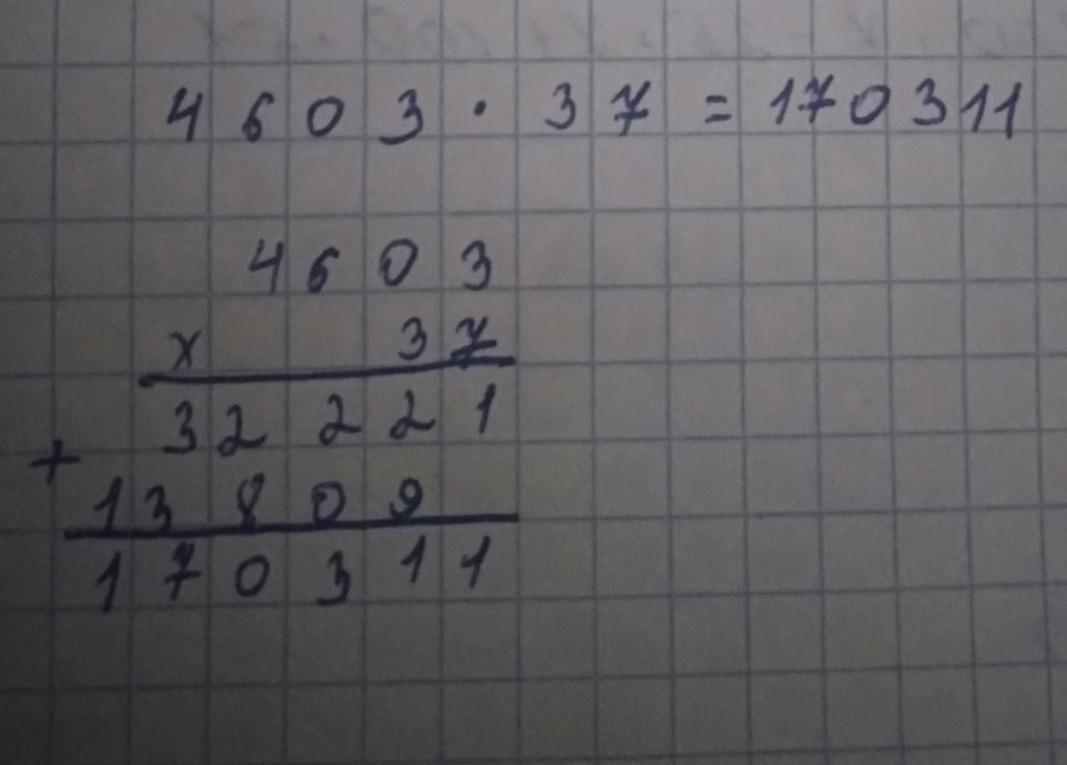 4603 · 37 = 170311
4603
x 37
32221
+
13809
170311